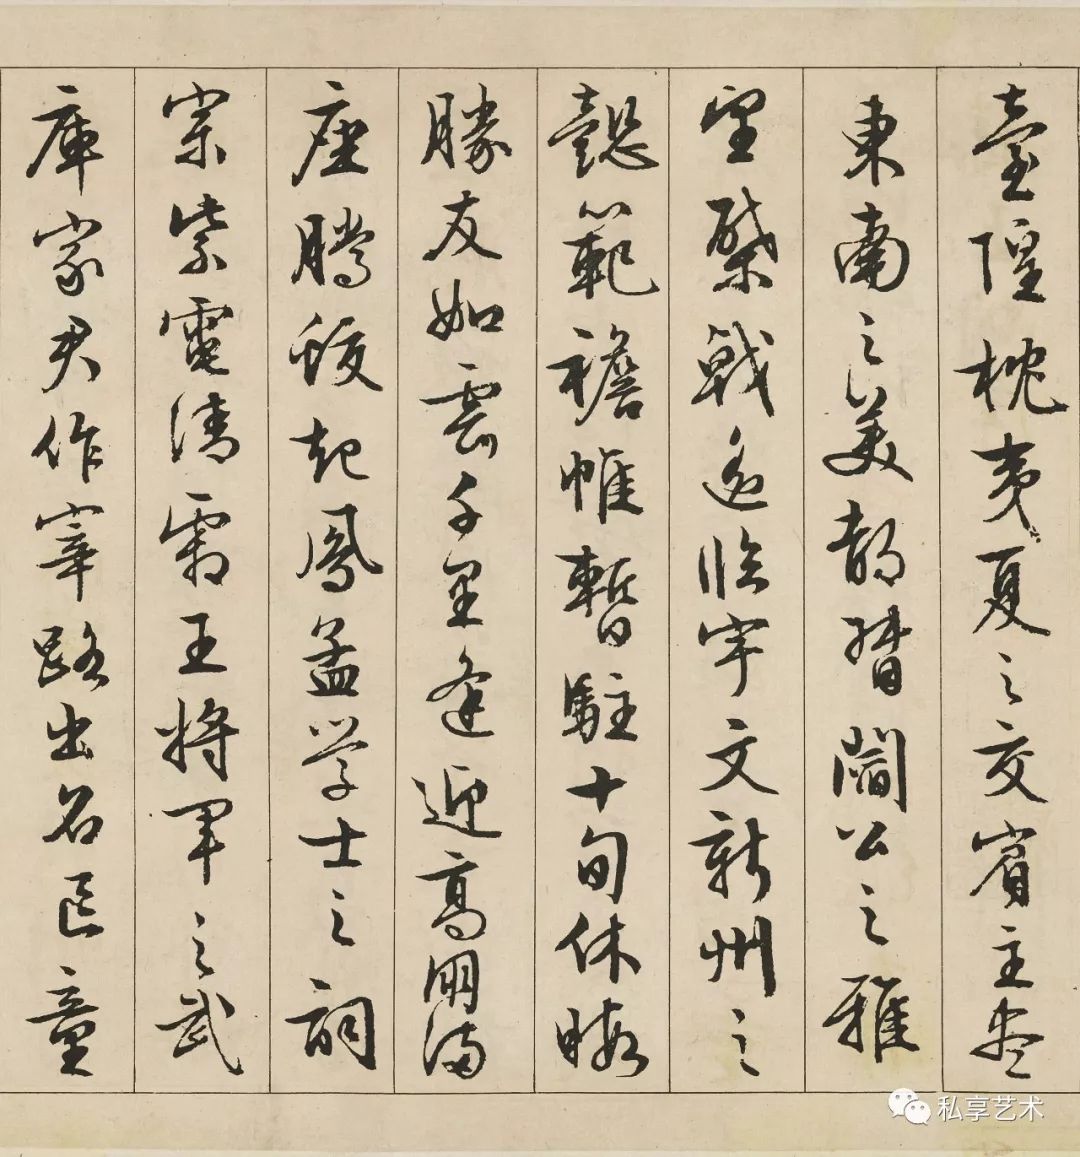 臺隍枕夷夏之交賓主盡
東南之美都督閻公之雅
望棨戟遙臨宇文新州之
懿範襜帷暫駐十旬休暇
勝友如雲千里逢迎高朋滿
座騰蛟起鳳孟學士之詞
宗紫電清霜王將軍之武
庫家君作宰路出名區童
私享艺术